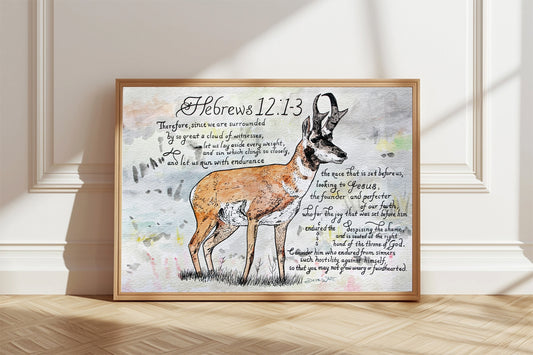 Hebrews 12:1-3
Therefore, since we are surrounded
by so great a cloud of witnesses,
let us lay aside every weight,
and sin which clings so closely,
and let us run with endurance
the race that is set before us,
looking to Jesus,
the founder and perfecter
of our faith,
who for the joy that was set before him
endured the cross despising the shame,
and is seated at the right
hand of the throne of God.
Consider him who endured from sinners
such hostility against himself,
so that you may not grow weary or fainthearted.